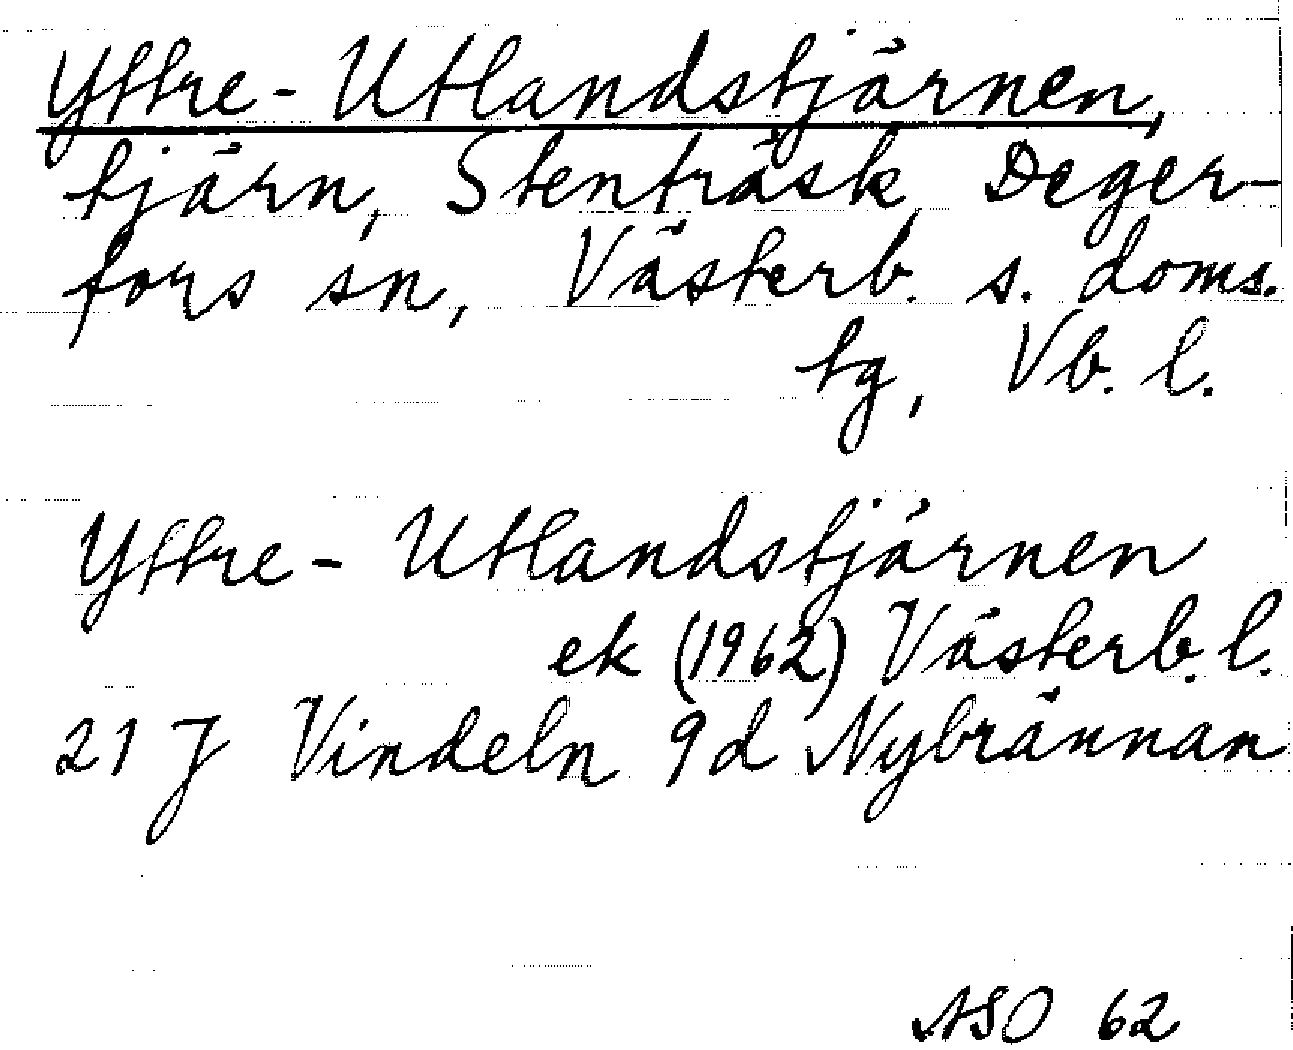 Yttre-Utlandstjärnen,
tjärn, Stenträsk, Deger-
fors sn, Västerb. s. doms.
tg, Vb. l.
Yttre-Utlandstjärnen
ek (1962) Västerb. l.
21 J Vindeln 9d Nybrännan
ASO 62